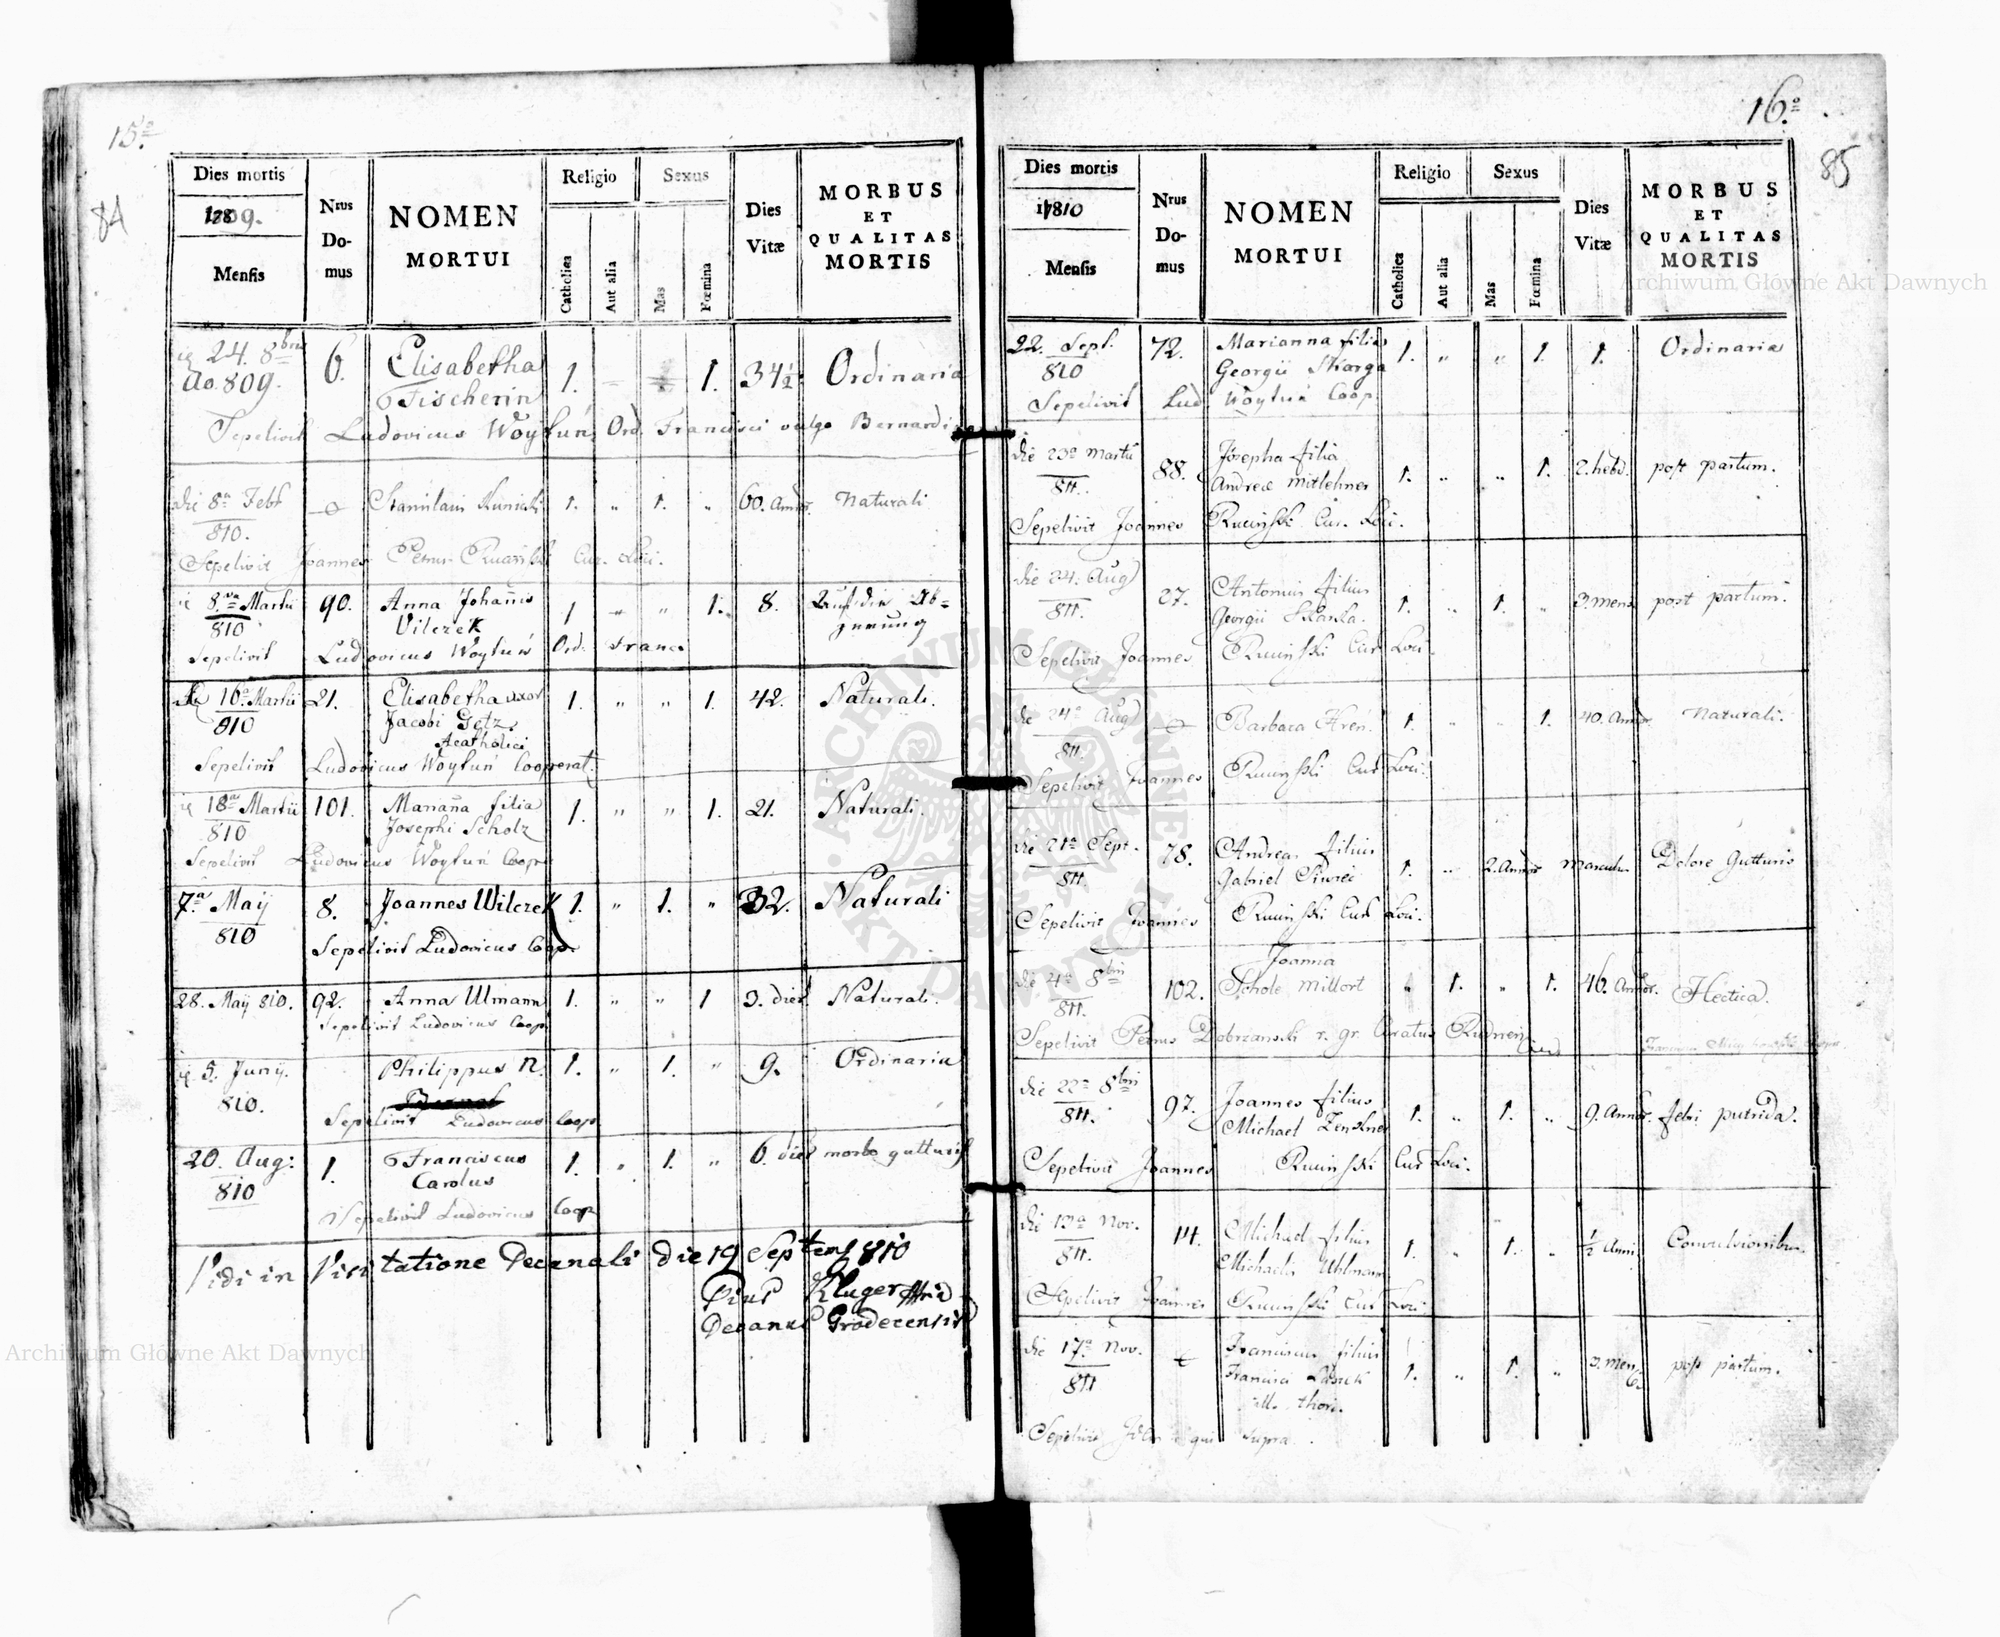 15.º
84
Dies mortis
1809.
Mensis
Nrus Do-mus
NOMEN
MORTUI
Religio
Catholica
Aut alia
Sexus
Mas
Fœmina
Dies
Vitæ
MORBUS
ET
QUALITAS
MORTIS
24. 8bris 6. Elisabetha 1. 1. 34½ Ordinaria
Ao. 809. Fischerin
Sepelivit Ludovicus Woytuń Ord. Francisci vulgo Bernardi
die 8a Feb 60. Naturali
810.
Sepelivit Joannes Cur. Loci.
8va Martii 90. Anna Johannis 1 " " 1. 8.
810 Vilczek
Sepelivit Ludovicus Woytuń Ord. Franc
die 16a Martii 21. Elisabetha uxor 1. " " 1. 42. Naturali.
810 Jacobi Getz
Acatholici
Sepelivit Ludovicus Woytuń Cooperat.
18va Martii 101. Mariaña filia 1. " " 1. 21. Naturali.
810 Josephi Scholz
Sepelivit Ludovicus Woytuń Coop
7.a Maij 8. Joannes Wilczek 1. " 1. " 32. Naturali
810
Sepelivit Ludovicus Coop.
28. Maij 810. 92. Anna Ulmann 1. " " 1 3. dies Naturali.
Sepelivit Ludovicus Coop.
5. Junij. Philippus N. 1. " 1. " 9. Ordinaria
810.
Sepelivit Ludovicus Coop.
20. Aug: 1. Franciscus 1. " 1. " 6. dies morbo gutturis
810 Carolus
Sepelivit Ludovicus Coop
Vidi in Visitatione Decanali die 19 Septem 810
Pius Kluger
Decanus Grodecensis
16.º
85
Dies mortis
1810
Mensis
Nrus Do-mus
NOMEN
MORTUI
Religio
Catholica
Aut alia
Sexus
Mas
Fœmina
Dies
Vitæ
MORBUS
ET
QUALITAS
MORTIS
22. Sept. 72. Marianna filia 1. " " 1. 1. Ordinaria
810 Georgii Skarga
Sepelivit Lud Woytuń Coop.
die 23a Martii 88. Josepha filia 1. " " 1. 2. hebd. post partum.
811. Andreæ Mitlehner
Sepelivit Joannes Cur. Loci.
die 24. Aug 27. Antonius filius 1. " 1. " 3. mens post partum.
811. Georgii Skarka.
Sepelivit Joannes Cur Loci.
die 24a Aug Barbara 1. " " 1. 40. Annor. Naturali.
811.
Sepelivit Joannes Cur Loci.
die 21a Sept. 78. Andreas filius 1. " 2. Annor Dolore Gutturis
811. Gabriel
Sepelivit Joannes Cur Loci.
Joanna
die 4a 8bris 102. Schole Millort " 1. " 1. 46. Annor. Hectica.
811.
Sepelivit Petrus Dobrzanski r. gr. Curatus
die 22a 8bris 97. Joannes filius 1. " 1. " 9. Annor. febri putrida.
811. Michael Zenkner
Sepelivit Joannes Cur Loci.
die 13a Nov. 14. Michael filius 1. " 1. " ½ Anni Convulsionibus.
811. Michaelis Uhlmann
Sepelivit Joannes Cur Loci.
die 17a Nov. Franciscus filius 1. " 1. " 3. mens post partum.
811 Francisci
ill. thori.
Sepelivit qui supra.
ARCHIWUM GŁÓWNE AKT DAWNYCH
Archiwum Główne Akt Dawnych
Archiwum Główne Akt Dawnych